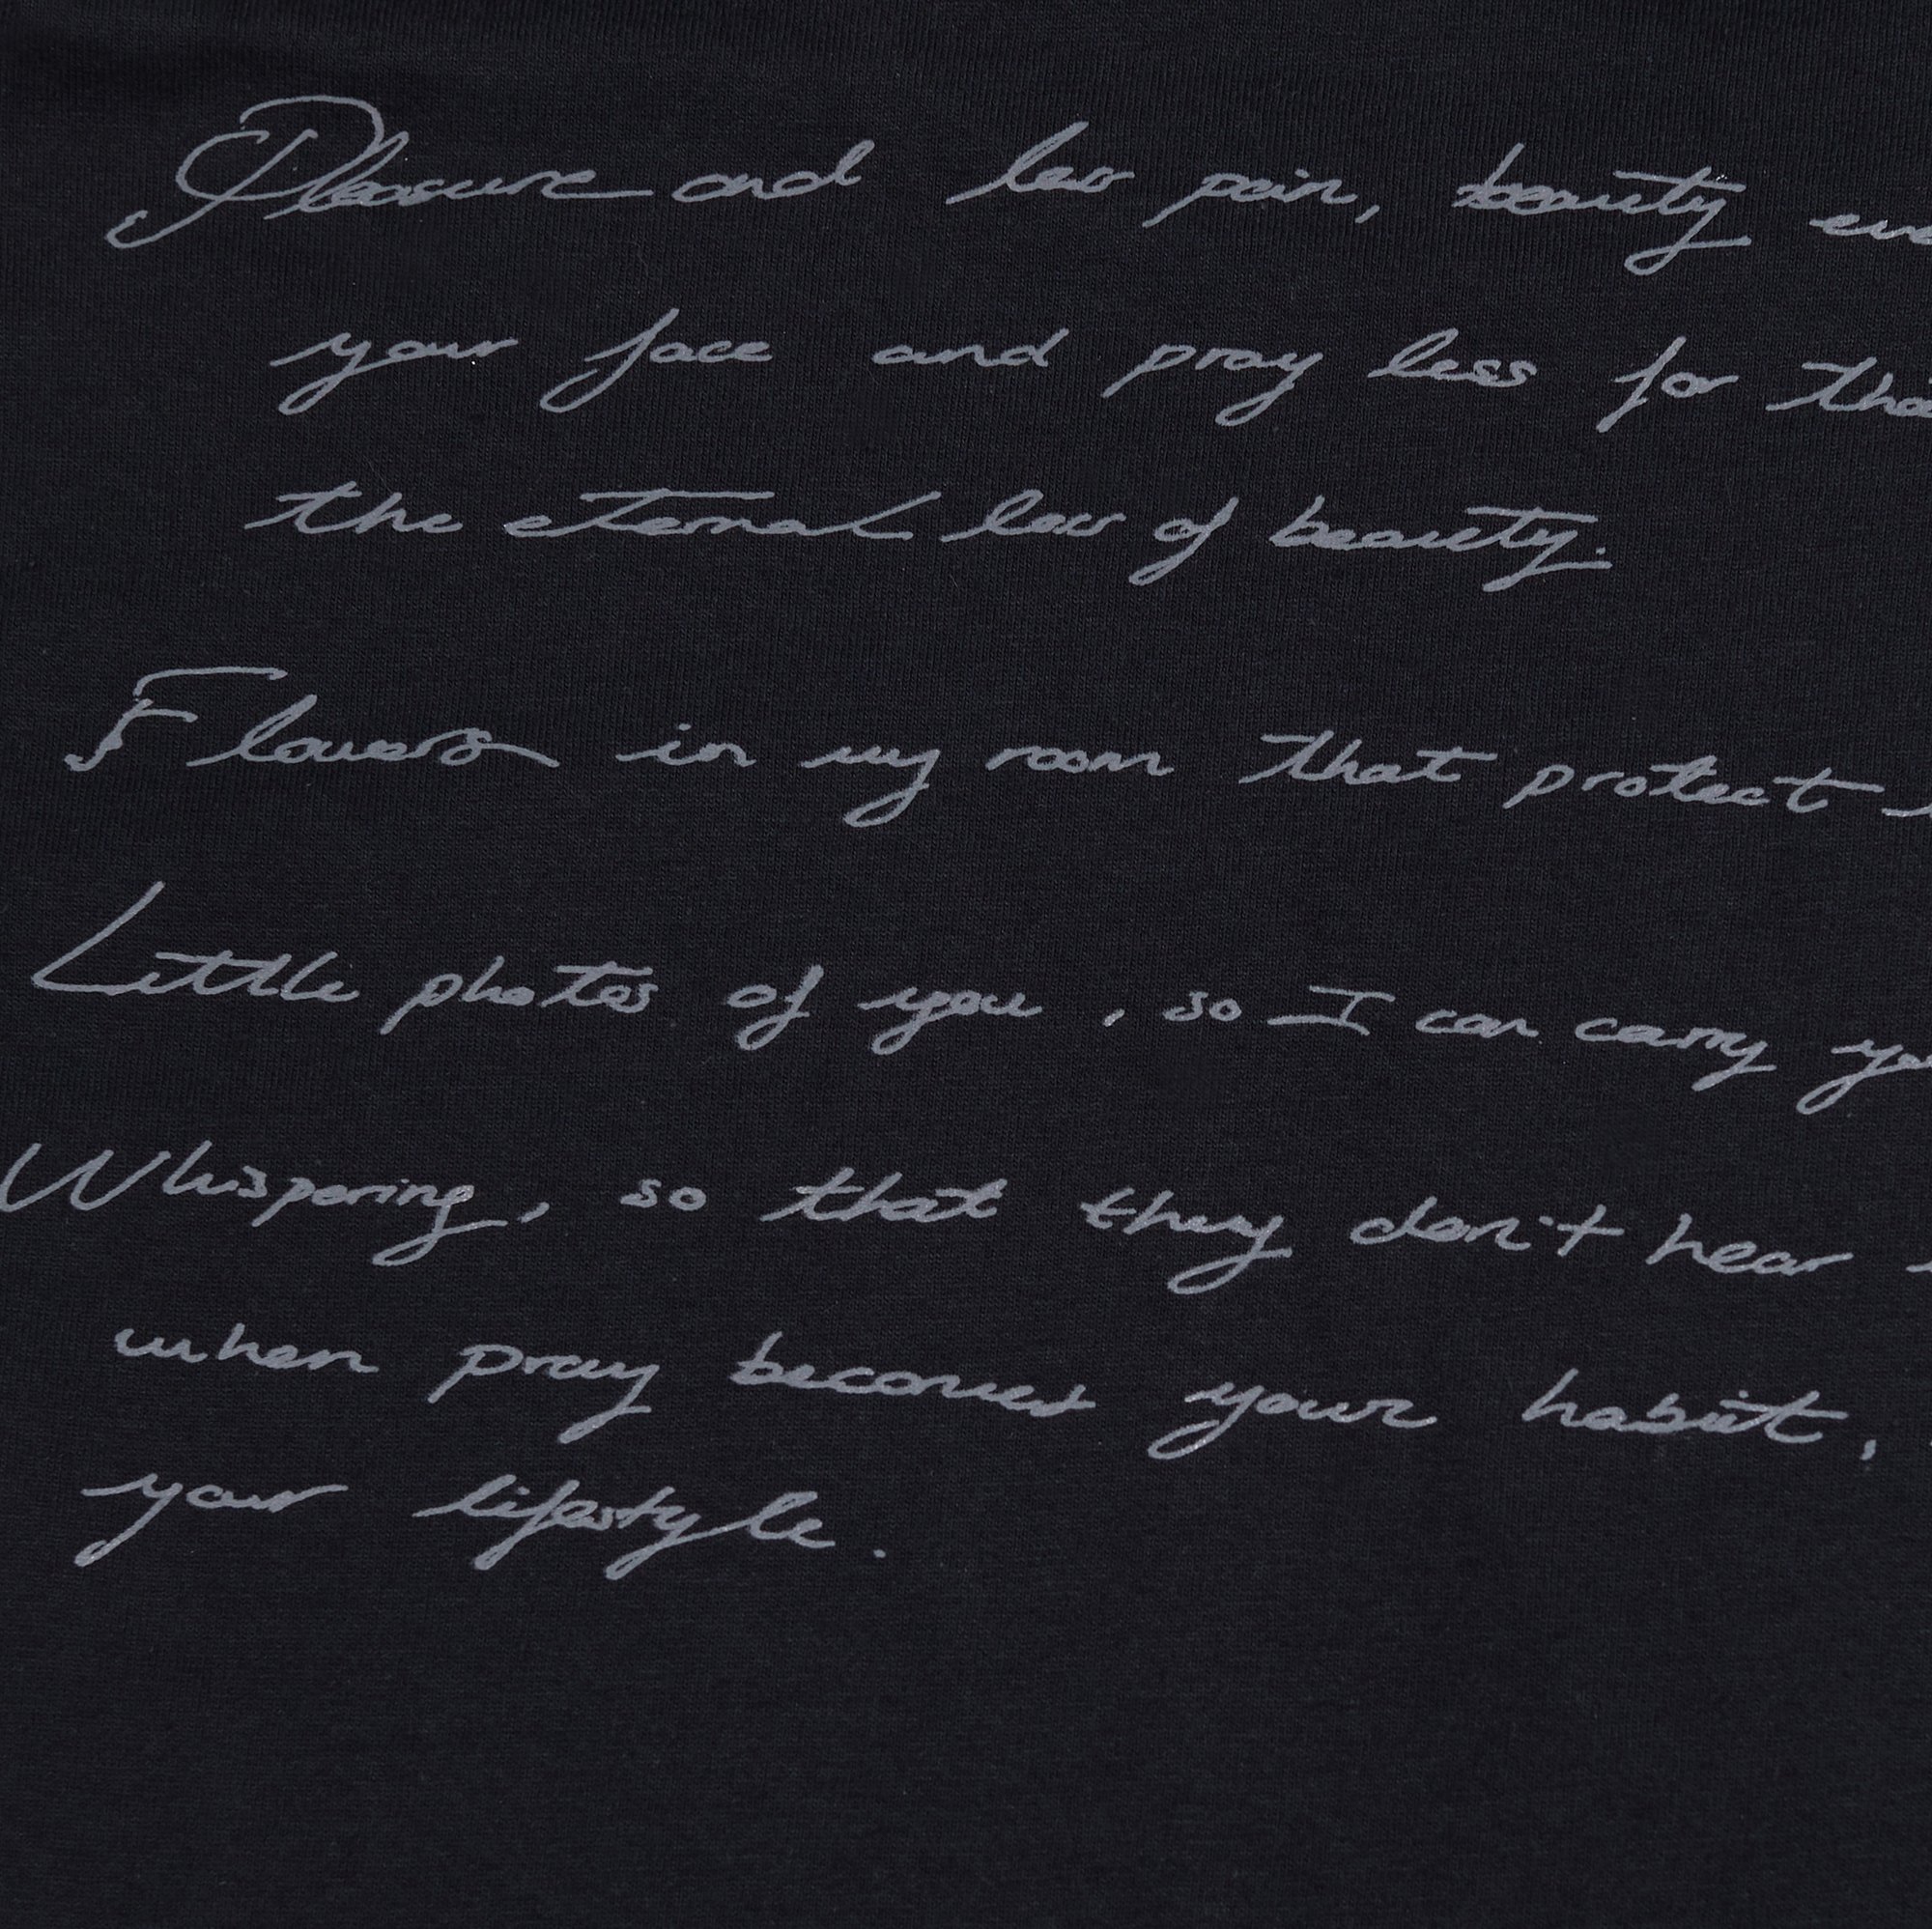 Pleasure and law pain, beauty
your face and pray less for
the eternal law of beauty.
Flowers in my room that protect
Little photos of you, so I can carry
Whispering, so that they don't hear
when pray becomes your habit,
your lifestyle.